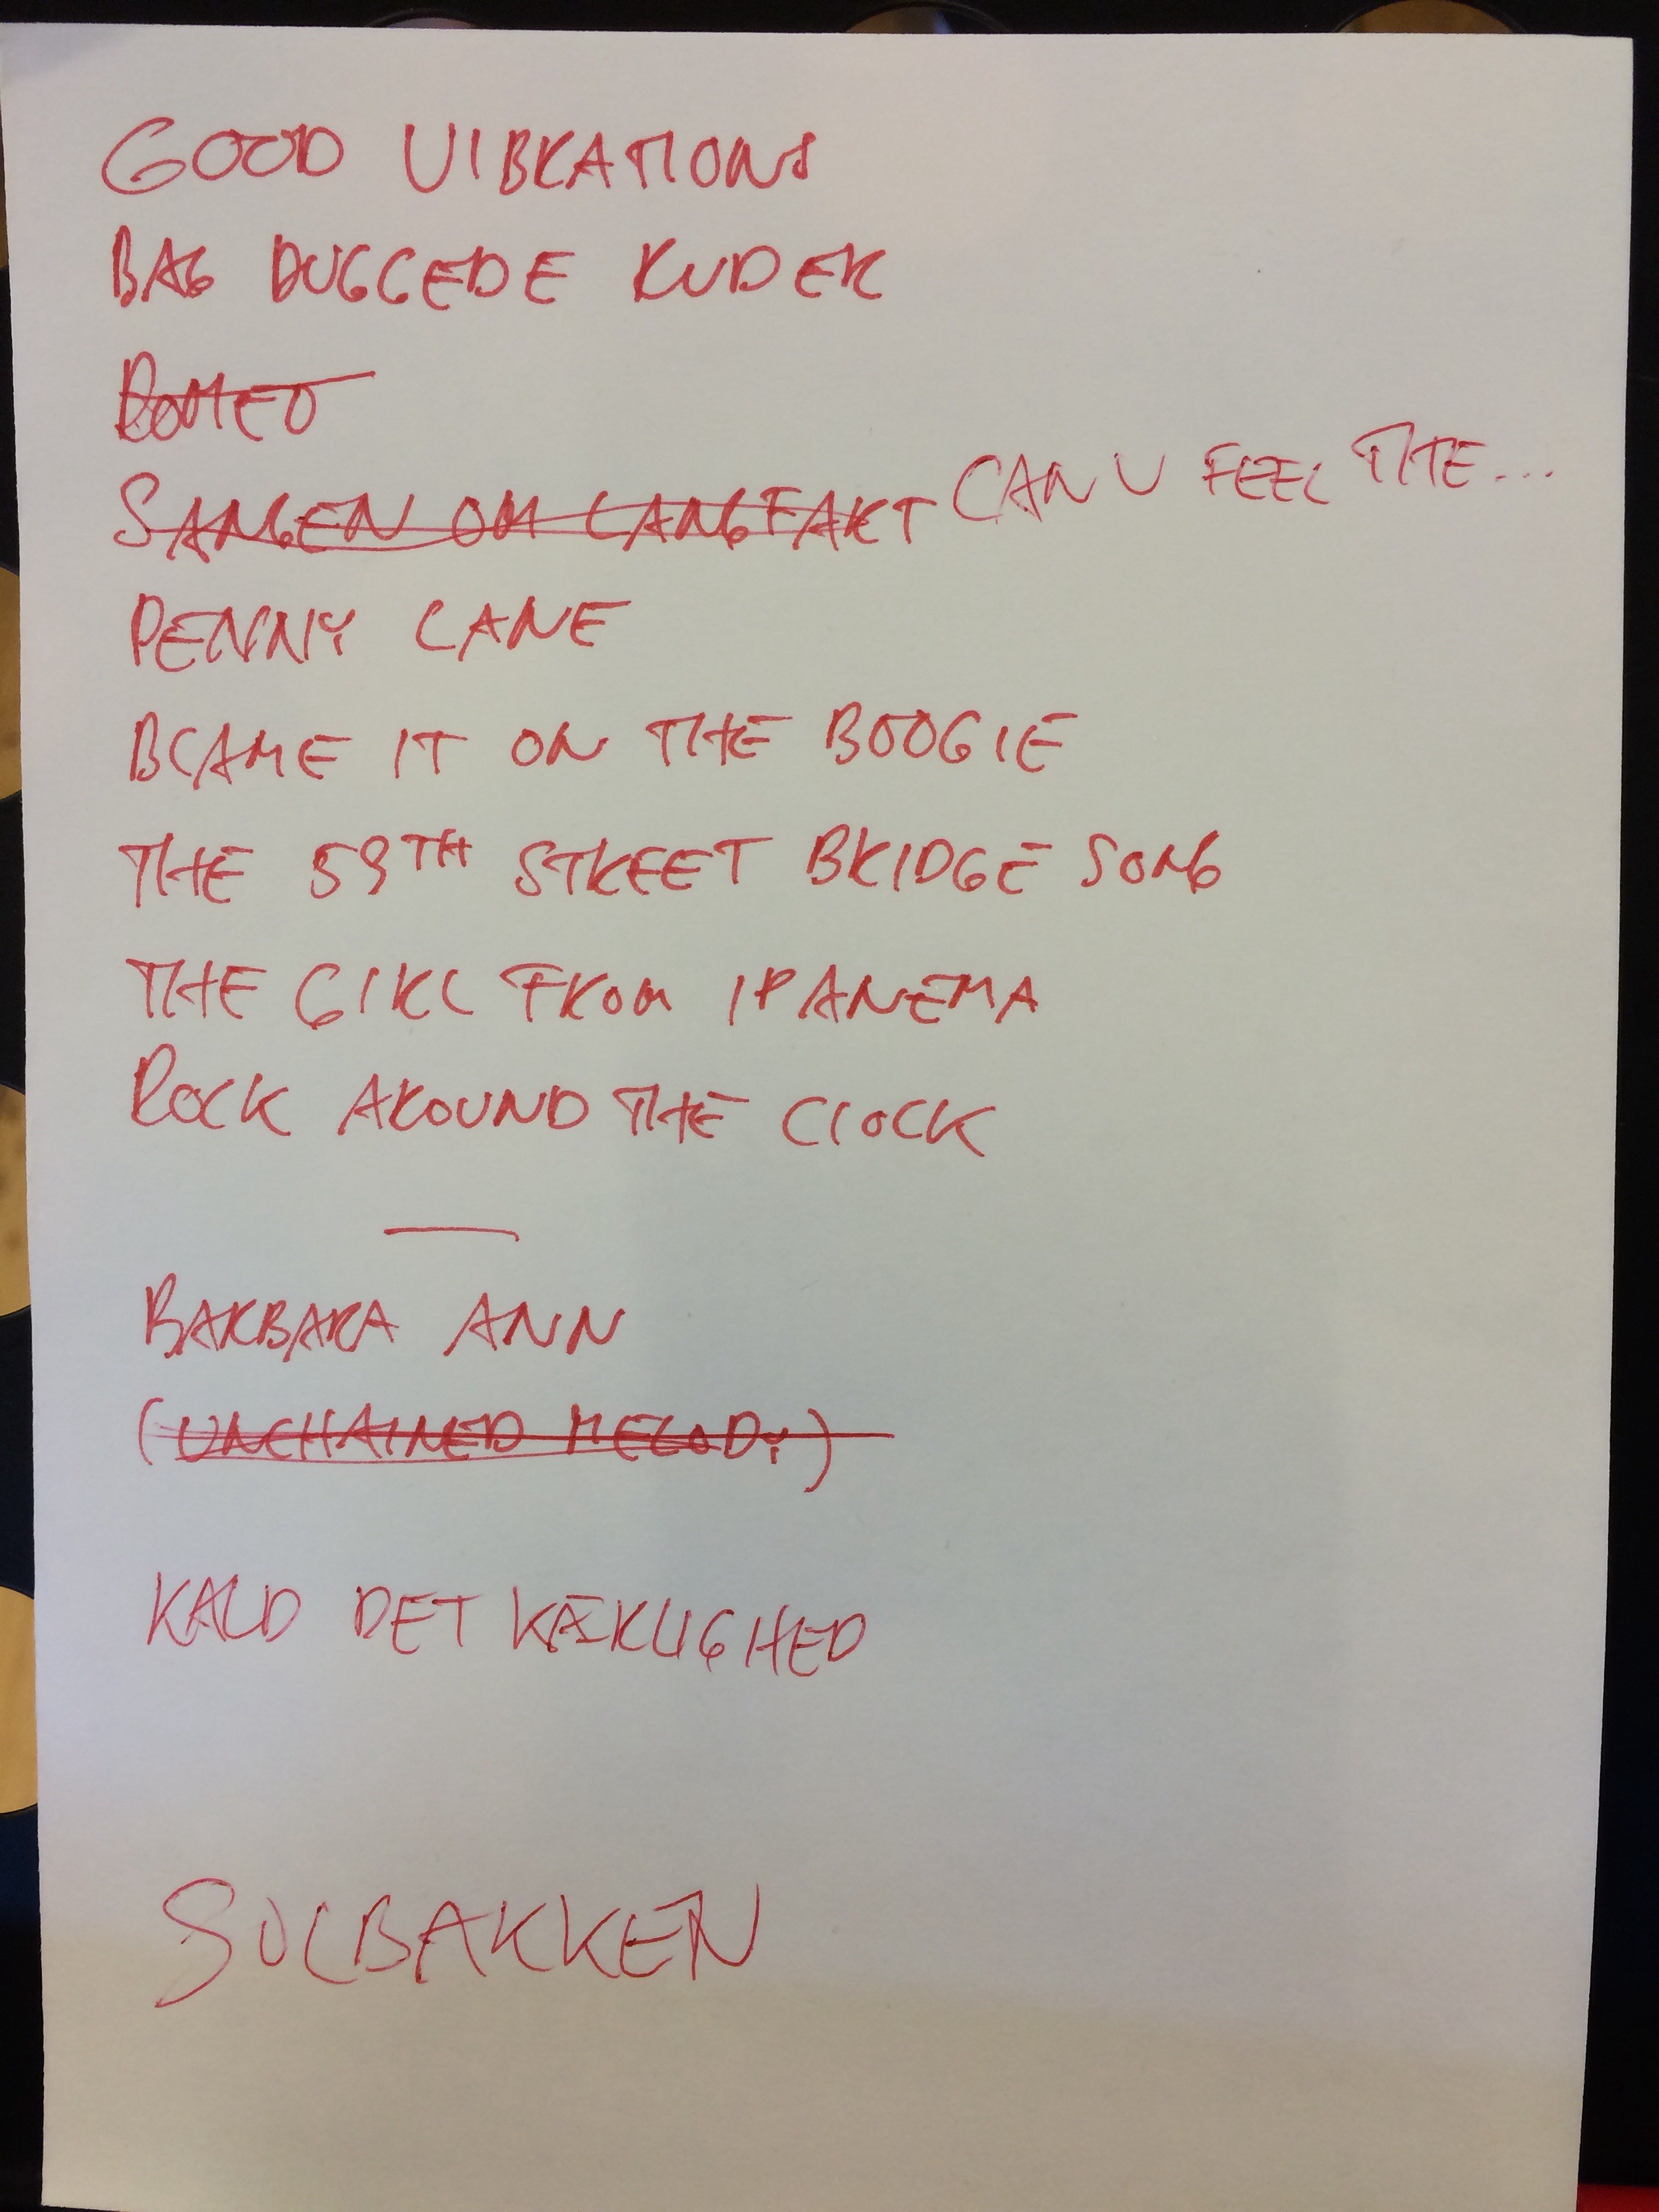 GOOD VIBRATIONS
BAG DUGGEDE RUDER
ROMEO
SANGEN OM LANGFART CAN U FEEL THE...
PENNY LANE
BLAME IT ON THE BOOGIE
THE 59TH STREET BRIDGE SONG
THE GIRL FROM IPANEMA
ROCK AROUND THE CLOCK
BARBARA ANN
(UNCHAINED MELODY)
KALD DET KÆRLIGHED
SOLBAKKEN